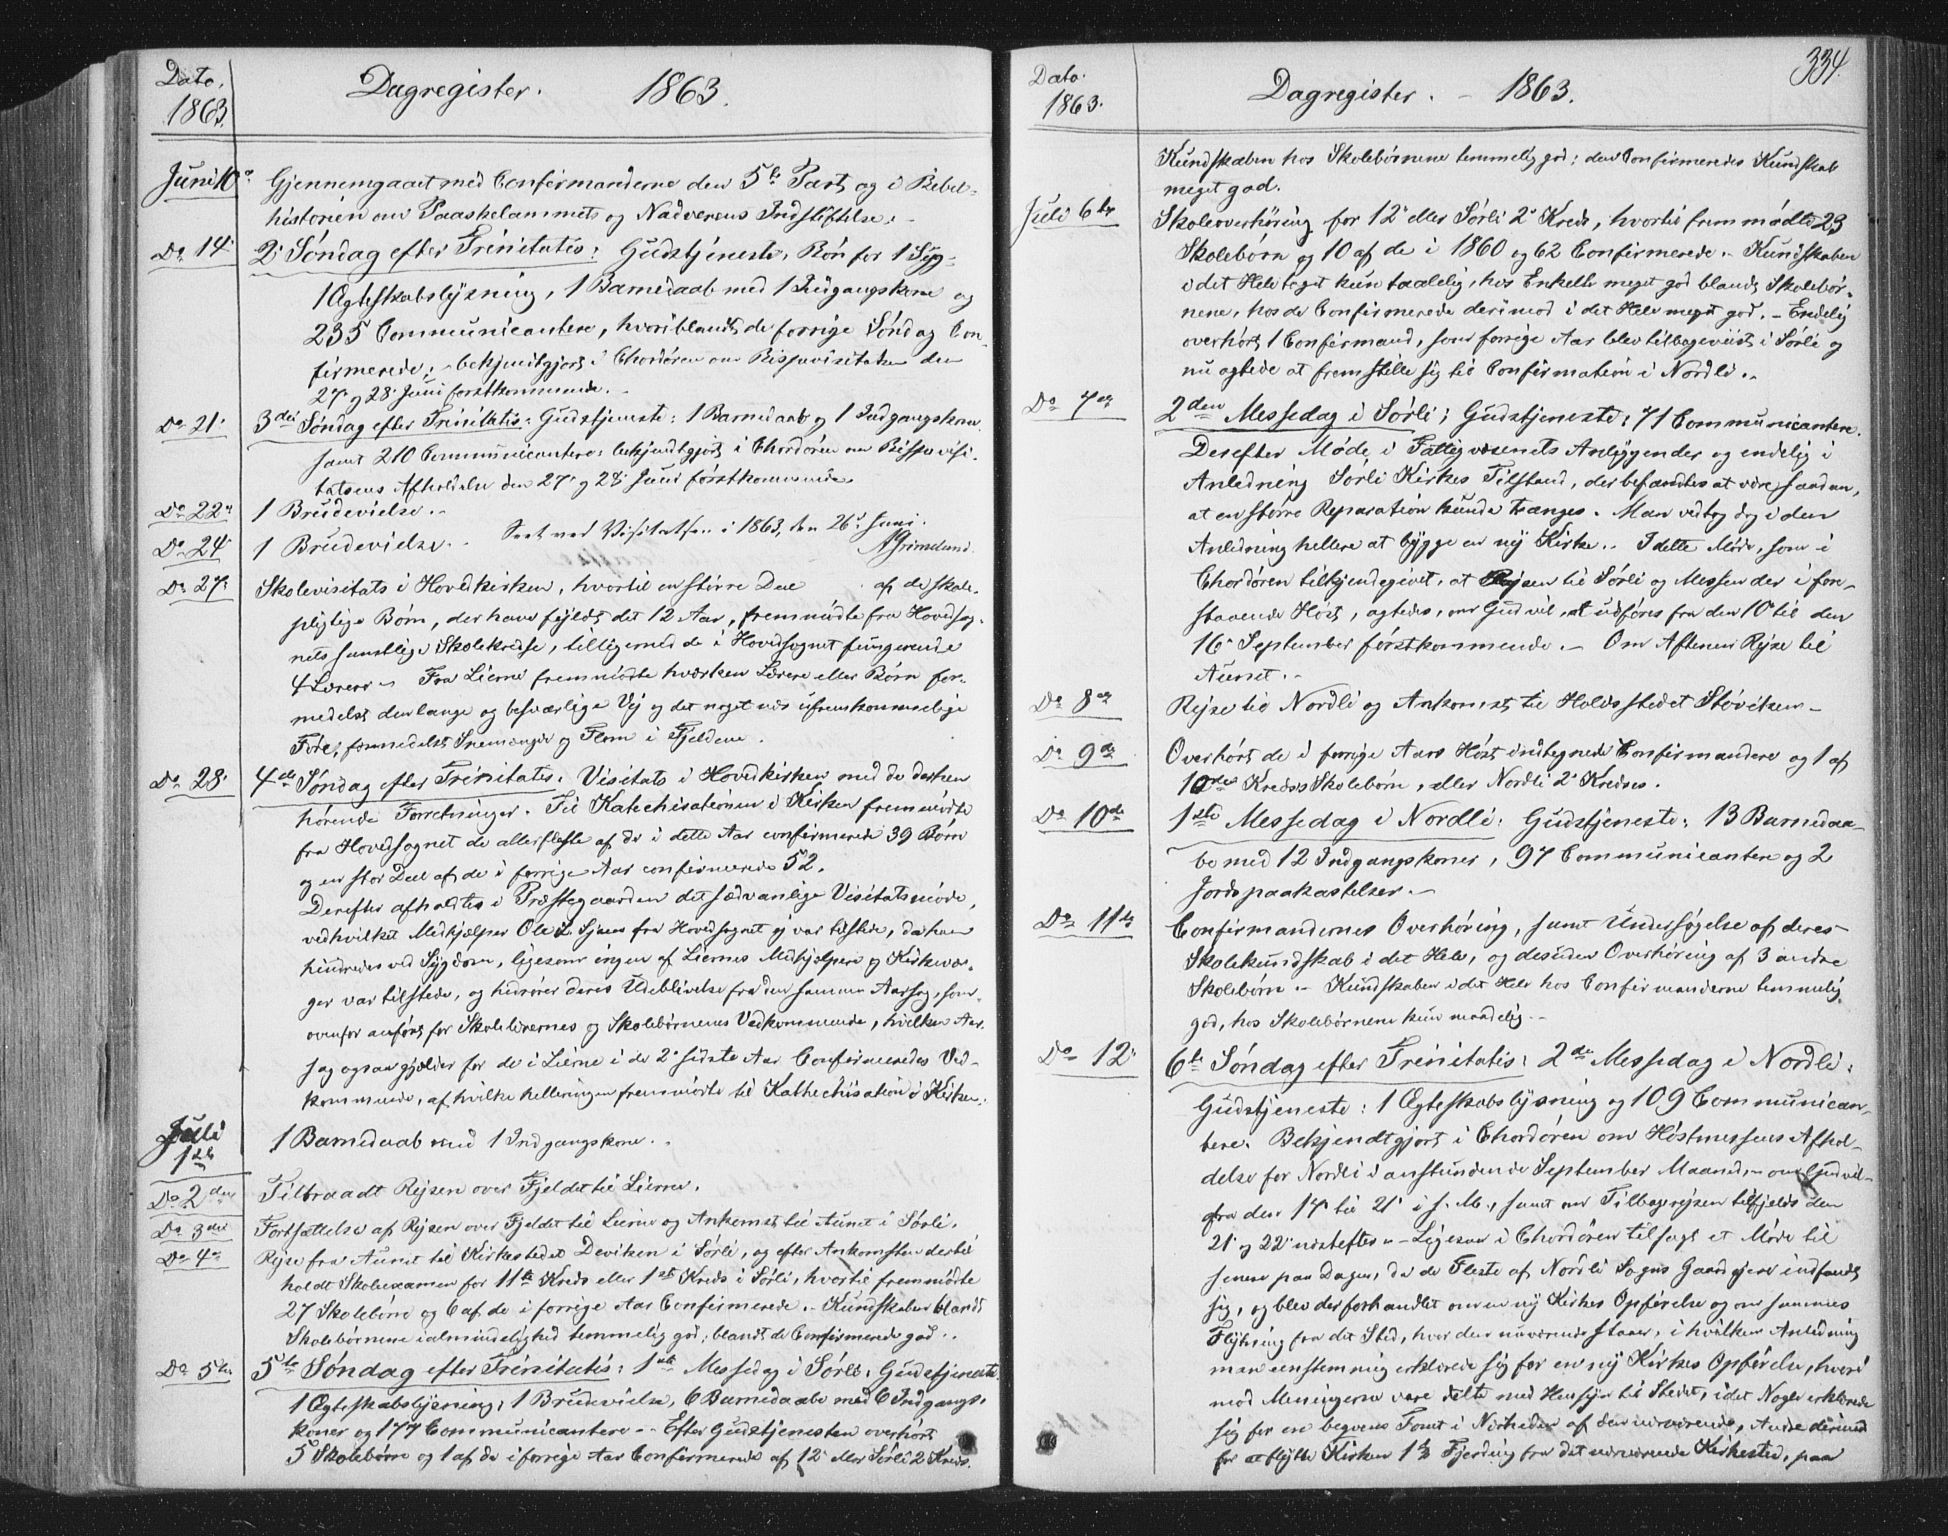 Dato.
1863.
Dagregister. 1863.
Juni 10de Gjennemgaaet med Confirmanderne den 5te Part og i Bibel-
historien om Paaskelammets og Nadverens Indstiftelse. -
Do 14. 2. Søndag efter Trinitatis: Gudstjeneste, Bøn for 1 Syg-
1 Ægteskabslysning, 1 Barnedaab med 1 Indgangskone og
235 Communicantere, hvoriblandt de forrige Søndag Con-
firmerede; - bekjendtgjort i Chordøren om Bispevisitatsen den
27. og 28. Juni førstkommende. -
Do 21. 3die Søndag efter Trinitatis: Gudstjeneste: 1 Barnedaab og 1 Indgangskone
samt 210 Communicantere: bekjendtgjort i Chordøren om Bispevisi-
tatsens Afholdelse den 27. og 28. Juni førstkommende.
Do 22. 1 Brudevielse. -
Seet ved Visitatsen i 1863, den 26. Juni.
Do 24. 1 Brudevielse. -
Grimelund.
Do 27. Skolevisitats i Hovedkirken, hvortil en større Deel af de skole-
pligtige Børn, der have fyldt det 12 Aar, fremmødte fra Hovedsog-
nets samtlige Skolekredse, tilligemed de i Hovedsognet fungerende
4 Lærere - Fra Lierne fremmødte hverken Lærere eller Børn for-
medelst den lange og besværlige Vej og det noget nær ufremkommelige
Føre, formedelst Snemængde og Flom i Fjeldene.
Do 28. 4de Søndag efter Trinitatis: Visitats i Hovedkirken med de derhen
hørende Forretninger. Til Katechisationen i Kirken fremmødte
fra Hovedsognet de allerfleste af de i dette Aar confirmerede 39 Børn
og en stor Deel af de i forrige Aar confirmerede 52.
Derefter afholdtes i Præstegaarden det sædvanlige Visitatsmøde,
ved hvilket Medhjælper Ole L. fra Hovedsognet ej var tilstede, da han
hindredes ved Sygdom, ligesom ingen af Liernes Medhjælpere og Kirkevær-
ger var tilstede, og hidrører deres Udeblivelse fra den samme Aarsag, som
ovenfor anført for Skolelærernes og Skolebørnenes Vedkommende, hvilken Aar-
sag ogsaa gjælder for de i Lierne i de 2 sidste Aar Confirmeredes Ved-
kommende, af hvilke helleringen fremmødte til Kathechisation i Kirken.
Juli
1ste 1 Barnedaab med 1 Indgangskone. -
Do 2den Tiltraadt Rejsen over Fjeldet til Lierne.
Do 3die Fortsættelse af Rejsen over Fjeldet til Lierne og Ankomst til Aunet i Sørli.
Do 4de Rejse fra Aunet til Kirkestedet Deviken i Sørli, og efter Ankomsten dertil
holdt Skoleexamen for 11te Kreds eller 1ste Kreds i Sørli, hvortil fremmødte
27 Skolebørn og 6 af de i forrige Aar Confirmerede. - Kundskaben blandt
Skolebørnene i almindelighed temmelig god; blandt de Confirmerede god. -
Do 5te 5te Søndag efter Trinitatis: 1ste Messedag i Sørli: Gudstjeneste
1 Ægteskabslysning, 1 Brudevielse, 6 Barnedaabe med 6 Indgangs-
koner og 177 Communicantere. - Efter Gudstjenesten overhørt
5 Skolebørn og 1 af de i forrige Aar Confirmerede af 12. eller Sørli 2. Kreds.
Dato.
1863.
Dagregister. - 1863.
334.
Kundskaben hos Skolebørnene temmelig god; den Confirmeredes Kundskab
meget god.
Juli 6te Skoleoverhøring for 12. eller Sørli 2. Kreds, hvortil fremmødte 23
Skolebørn og 10 af de i 1860 og 62 Confirmerede. - Kundskaben
i det Hele taget kun taalelig, hos Enkelte meget god blandt Skolebør-
nene, hos de Confirmerede derimod i det Hele meget god. - Endelig
overhørt 1 Confirmand, som forrige Aar blev tilbageviist i Sørli og
nu agtede at fremstille sig til Confirmation i Nordli. -
Do 7de 2den Messedag i Sørli; Gudstjeneste; 71 Communicantere.
Derefter Møde i Fattigvæsenets Anliggender og endelig i
Anledning Sørli Kirkes Tilstand, der befandtes at være saadan,
at en større Reparation kunde trænges. - Man vedtog dog i den
Anledning hellere at bygge en ny Kirke. - I dette Møde, som i
Chordøren tilkjendegivet, at Rejsen til Sørli og Messen der i fore-
staaende Høst, agtedes, om Gud vil, at udføres fra den 10. til den
16. September førstkommende. - Om Aftenen Rejse til
Aunet. -
Do 8de Rejse til Nordli og Ankomst til Holdestedet Støviken -
Do 9de Overhørt de i forrige Aars Høst indtegnede Confirmandere og 1 af
10des Kreds's Skolebørn, eller Nordli 2. Kredses.
Do 10de 1ste Messedag i Nordli: Gudstjeneste: 13 Barnedaa-
be med 12 Indgangskoner, 97 Communicantere og 2
Jordspaakastelser. -
Do 11te Confirmandernes Overhøring, samt Undersøgelse af deres
Skolekundskab i det Hele, og desuden Overhøring af 3 andre
Skolebørn. - Kundskaben i det Hele hos Confirmanderne temmelig
god, hos Skolebørnene kun maadelig. -
Do 12. 6te Søndag efter Trinitatis: 2den Messedag i Nordli:
Gudstjeneste: 1 Ægteskabslysning og 109 Communican-
tere. Bekjendtgjort i Chordøren om Høstmessens Afhol-
delse for Nordli i anstundende September Maaned, - om Gud vil -
fra den 17. til 21. i s. M., samt om Tilbagerejsen tilfjelds den
21. og 22. næstefter. - Ligesom i Chordøren tilsagt et Møde til
senere paa Dagen, da de Fleste af Nordli Sogns Gaardejere indfandt
sig, og blev der forhandlet om en ny Kirkes Opførelse og om sammes
Flytning fra det Sted, hvor den nuværende staaer, i hvilken Anledning
man eenstemmig erklærede sig for en ny Kirkes Opførelse, hvori-
mod Meningerne vare delte med Hensyn til Stedet, idet Nogle erklærede
sig for en begvem Tomt i Nærheden af den nuværende, Andre derimod
for at flytte Kirken 1½ Fjerding fra det nuværende Kirkested, paa